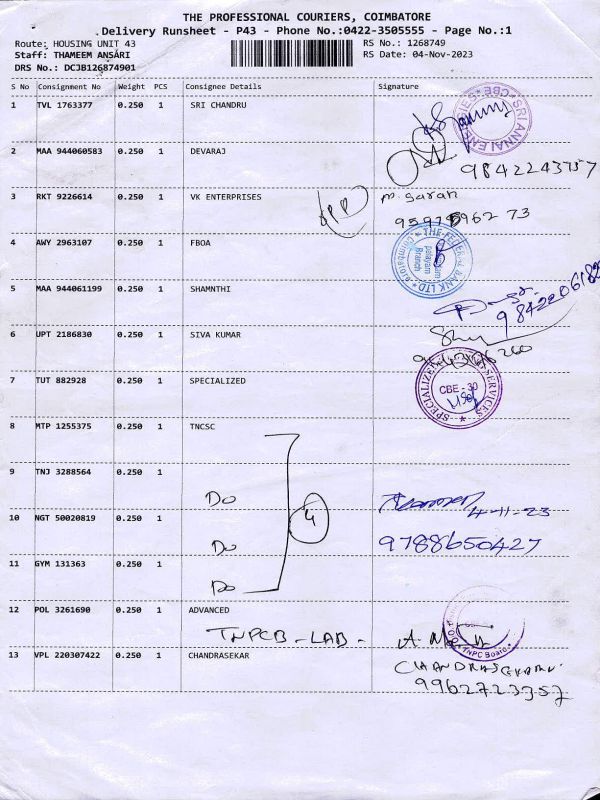 THE PROFESSIONAL COURIERS, COIMBATORE
Delivery Runsheet - P43 - Phone No.:0422-3505555 - Page No.:1
Route: HOUSING UNIT 43 RS No.: 1268749
Staff: THAMEEM ANSARI RS Date: 04-Nov-2023
DRS No.: DCJB126874901
S No Consignment No Weight PCS Consignee Details Signature
1 TVL 1763377 0.250 1 SRI CHANDRU
SRI ANNAI CBE
2 MAA 944060583 0.250 1 DEVARAJ
9842243757
3 RKT 9226614 0.250 1 VK ENTERPRISES m. Saran
4 AWY 2963107 0.250 1 FBOA
THE FEDERAL BANK LTD Branch
5 MAA 944061199 0.250 1 SHAMNTHI
6 UPT 2186830 0.250 1 SIVA KUMAR
7 TUT 882928 0.250 1 SPECIALIZED
SPECIALIZED SERVICES CBE - 30
8 MTP 1255375 0.250 1 TNCSC
9 TNJ 3288564 0.250 1
Do
4
4-11-23
10 NGT 50020819 0.250 1
Do 9788650427
11 GYM 131363 0.250 1
Do
12 POL 3261690 0.250 1 ADVANCED
TNPCB - LAB - TNPC Board
13 VPL 220307422 0.250 1 CHANDRASEKAR
CHANDRASEKARAN
9962723357